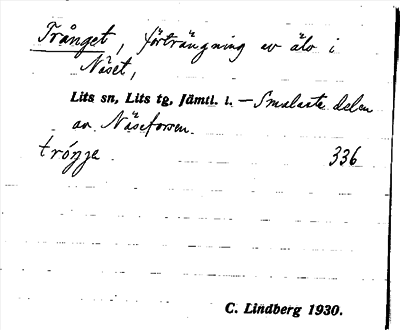 Trånget, förträngning av älv i
Näset,
Lits sn, Lits tg, Jämtl. l. — Smalaste delen
av Näseforsen.
tróŋŋa 336
C. Lindberg 1930.